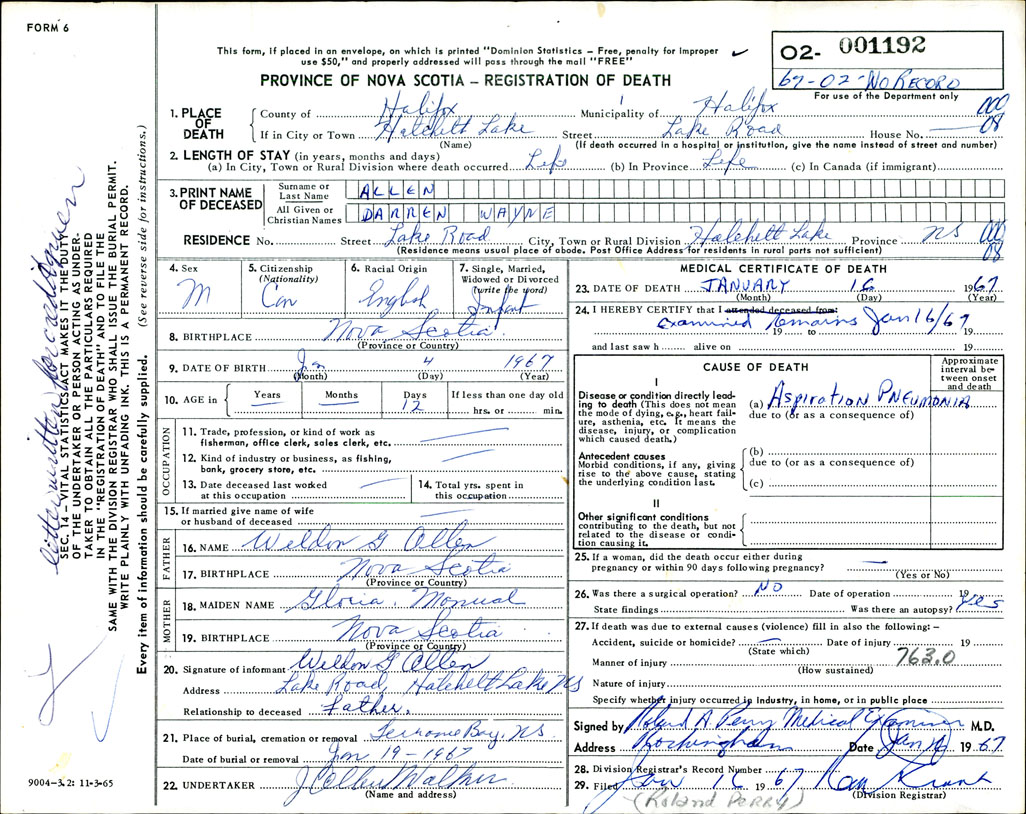 FORM 6
This form, if placed in an envelope, on which is printed "Dominion Statistics – Free, penalty for improper
use $50," and properly addressed will pass through the mail "FREE"
PROVINCE OF NOVA SCOTIA – REGISTRATION OF DEATH
02- 001192
67-02-NO RECORD
For use of the Department only
1. PLACE OF DEATH
County of Halifax Municipality of Halifax 000
If in City or Town Hatchett Lake Street Lake Road House No. — 08
(Name) (If death occurred in a hospital or institution, give the name instead of street and number)
2. LENGTH OF STAY (in years, months and days)
(a) In City, Town or Rural Division where death occurred Life (b) In Province Life (c) In Canada (if immigrant)
3. PRINT NAME OF DECEASED
Surname or Last Name ALLEN
All Given or Christian Names DARREN WAYNE
RESIDENCE No. Street Lake Road City, Town or Rural Division Hatchett Lake Province NS 000
(Residence means usual place of abode. Post Office Address for residents in rural parts not sufficient) 08
4. Sex M
5. Citizenship (Nationality) Can
6. Racial Origin English
7. Single, Married, Widowed or Divorced (write the word) Infant
8. BIRTHPLACE Nova Scotia
(Province or Country)
9. DATE OF BIRTH Jan 4 1967
(Month) (Day) (Year)
10. AGE in Years Months Days 12 If less than one day old
hrs. or min.
OCCUPATION
11. Trade, profession, or kind of work as
fisherman, office clerk, sales clerk, etc. —
12. Kind of industry or business, as fishing,
bank, grocery store, etc. —
13. Date deceased last worked
at this occupation —
14. Total yrs. spent in
this occupation
15. If married give name of wife
or husband of deceased —
FATHER
16. NAME Weldon G Allen
17. BIRTHPLACE Nova Scotia
(Province or Country)
MOTHER
18. MAIDEN NAME Gloria Monual
19. BIRTHPLACE Nova Scotia
(Province or Country)
20. Signature of informant Weldon G Allen
Address Lake Road, Hatchett Lake NS
Relationship to deceased father,
21. Place of burial, cremation or removal Terrence Bay, NS
Date of burial or removal Jan 19-1967
22. UNDERTAKER J Walker
(Name and address)
MEDICAL CERTIFICATE OF DEATH
23. DATE OF DEATH JANUARY 16 1967
(Month) (Day) (Year)
24. I HEREBY CERTIFY that I attended deceased from:
Examined remains Jan 16/67
19 to 19
and last saw h alive on 19
CAUSE OF DEATH
Approximate interval between onset and death
I
Disease or condition directly leading to death (This does not mean the mode of dying, e.g., heart failure, asthenia, etc. It means the disease, injury, or complication which caused death.)
(a) Aspiration PNEUMONIA
due to (or as a consequence of)
Antecedent causes
Morbid conditions, if any, giving rise to the above cause, stating the underlying condition last.
(b)
due to (or as a consequence of)
(c)
II
Other significant conditions
contributing to the death, but not related to the disease or condition causing it.
25. If a woman, did the death occur either during
pregnancy or within 90 days following pregnancy? —
(Yes or No)
26. Was there a surgical operation? NO Date of operation 19
State findings Was there an autopsy? Yes
27. If death was due to external causes (violence) fill in also the following: –
Accident, suicide or homicide? — Date of injury 19
(State which)
Manner of injury 763.0
(How sustained)
Nature of injury
Specify whether injury occurred in industry, in home, or in public place
Signed by Roland A. Perry Medical Examiner M.D.
Address Rockingham Date Jan 16 1967
28. Division Registrar's Record Number
29. Filed Jan 16 1967
(Division Registrar)
(Roland PERRY)
9004-3.2: 11-3-65
letter written for
SEC. 14 – VITAL STATISTICS ACT MAKES IT THE DUTY
OF THE UNDERTAKER OR PERSON ACTING AS UNDER-
TAKER TO OBTAIN ALL THE PARTICULARS REQUIRED
IN THE "REGISTRATION OF DEATH" AND TO FILE THE
SAME WITH THE DIVISION REGISTRAR WHO SHALL ISSUE THE BURIAL PERMIT.
WRITE PLAINLY WITH UNFADING INK. THIS IS A PERMANENT RECORD.
Every item of information should be carefully supplied. (See reverse side for instructions.)